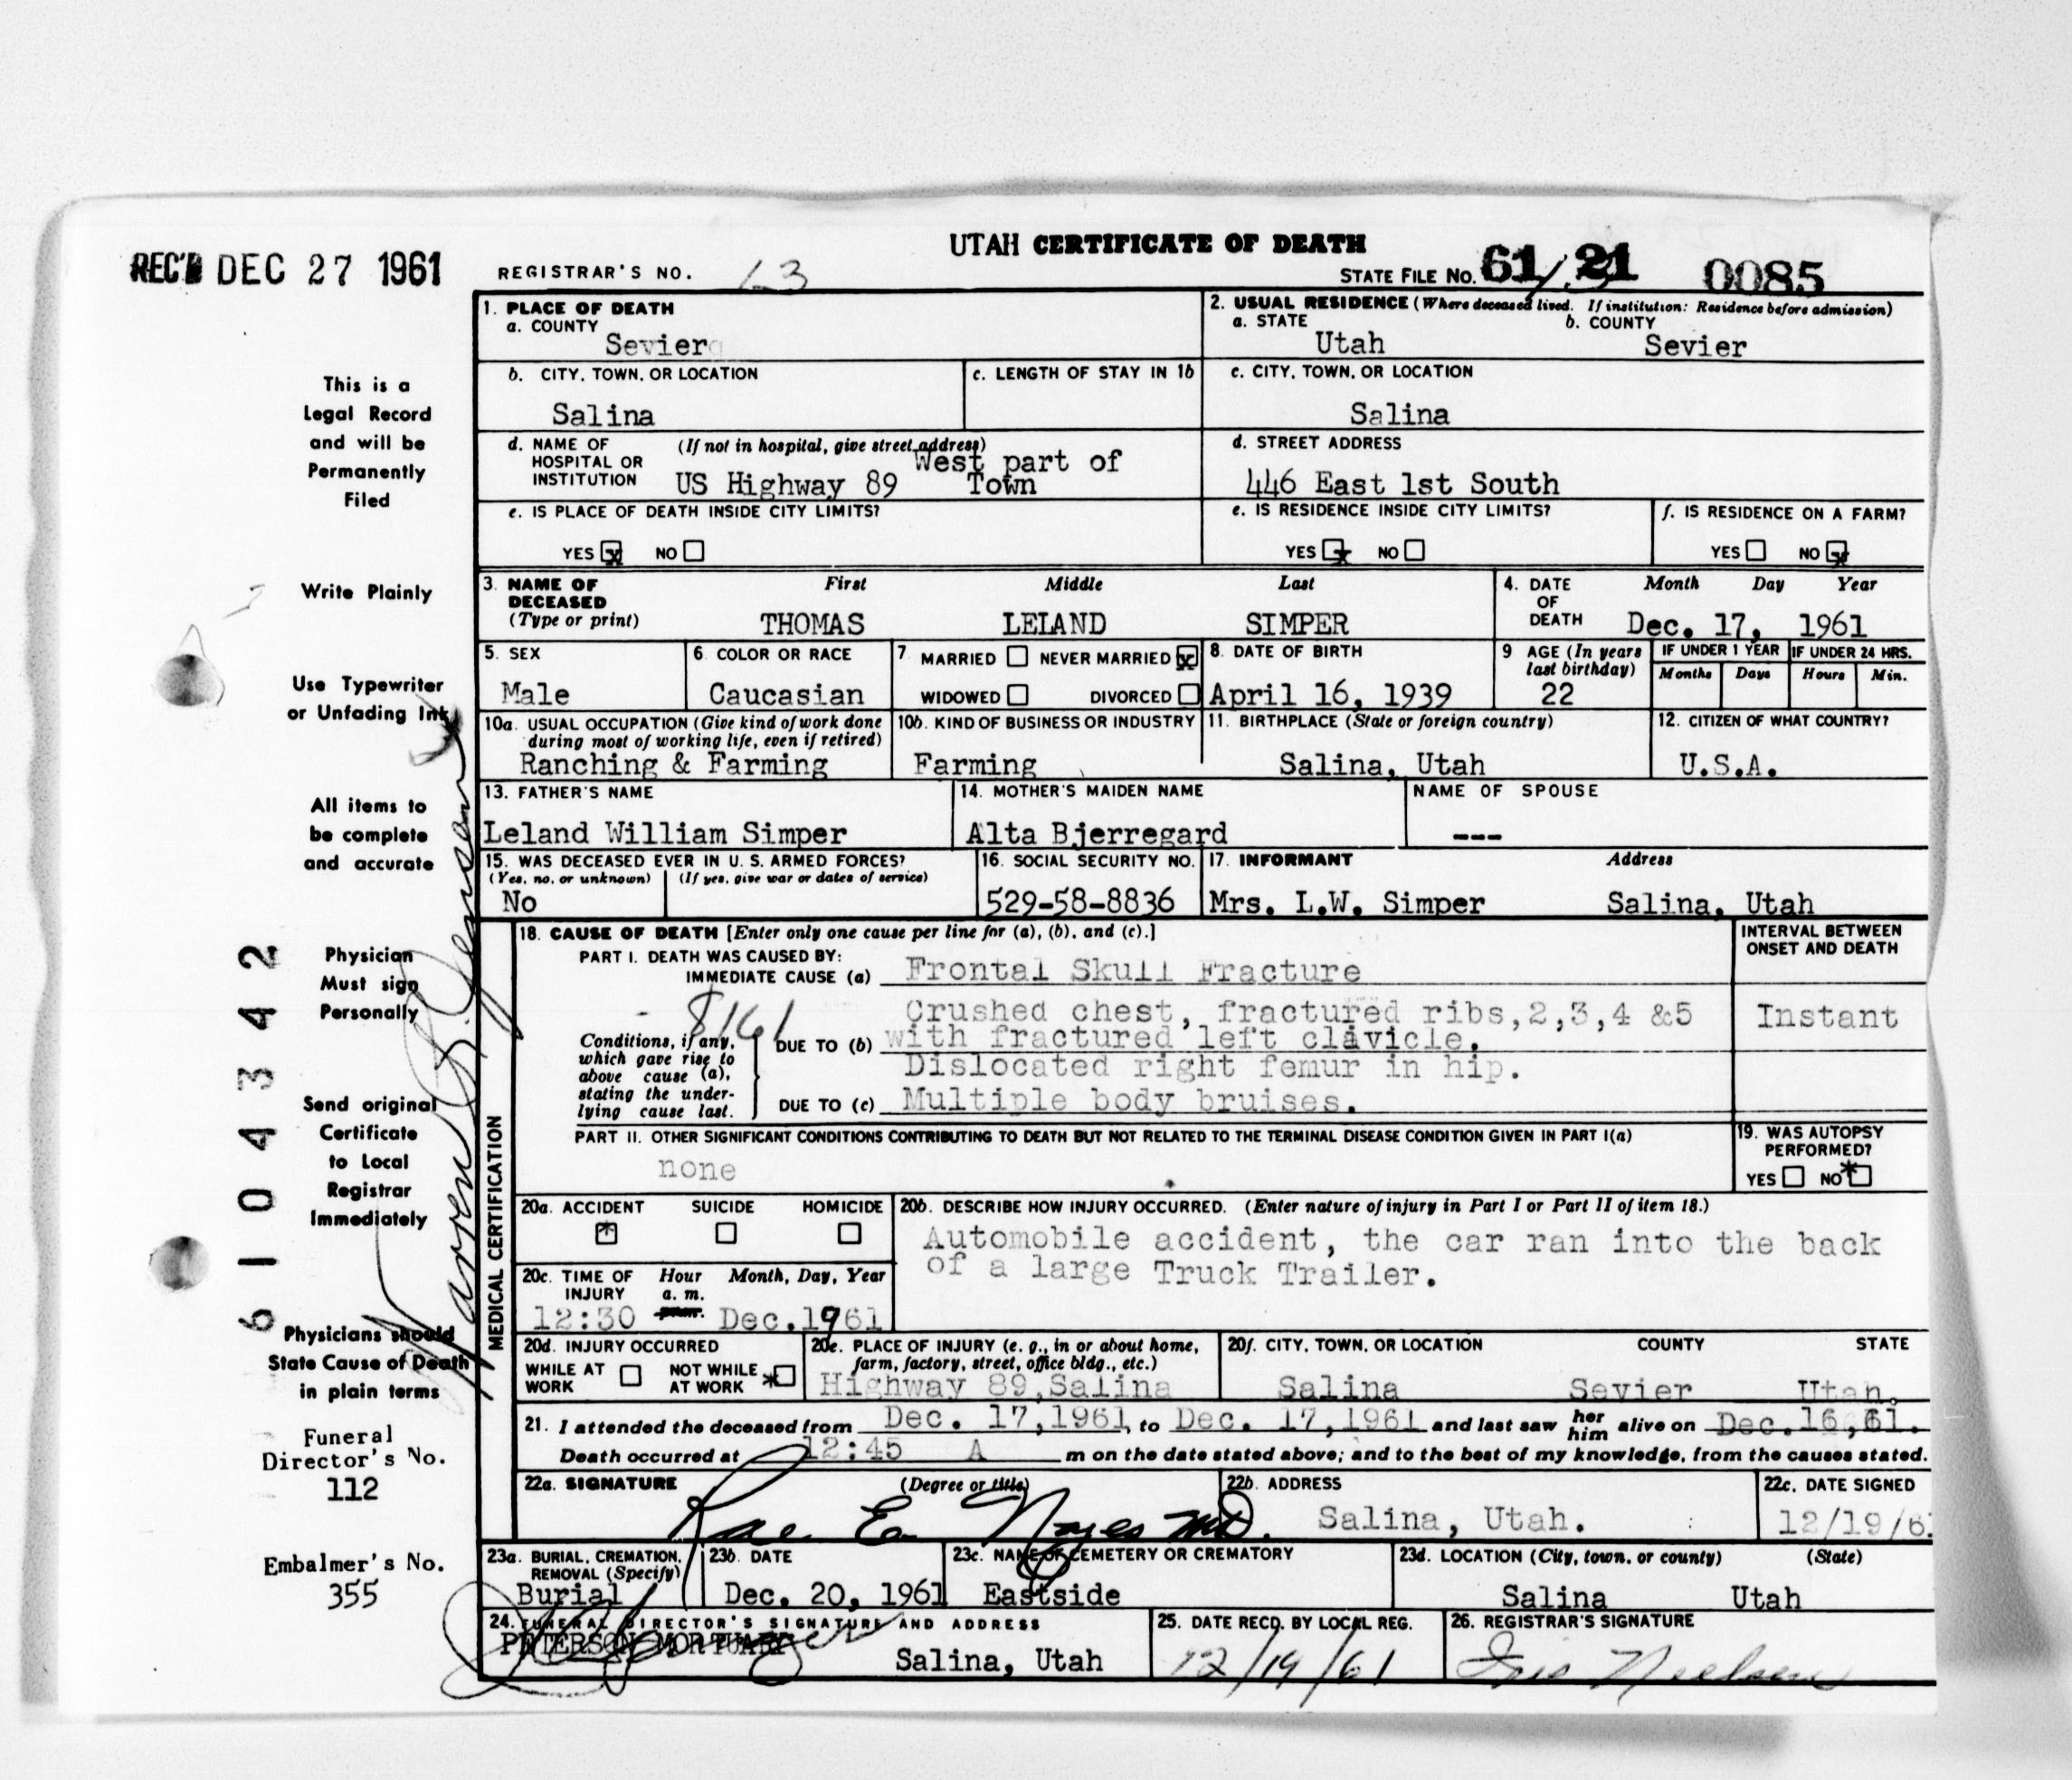 UTAH CERTIFICATE OF DEATH
REC'D DEC 27 1961
REGISTRAR'S NO. 63
STATE FILE NO. 61 21 0085
1. PLACE OF DEATH
a. COUNTY
Sevier
2. USUAL RESIDENCE (Where deceased lived. If institution: Residence before admission)
a. STATE
Utah
b. COUNTY
Sevier
b. CITY, TOWN, OR LOCATION
Salina
c. LENGTH OF STAY IN 1b
c. CITY, TOWN, OR LOCATION
Salina
d. NAME OF HOSPITAL OR INSTITUTION
(If not in hospital, give street address)
US Highway 89 West part of Town
d. STREET ADDRESS
446 East 1st South
e. IS PLACE OF DEATH INSIDE CITY LIMITS?
YES x NO
e. IS RESIDENCE INSIDE CITY LIMITS?
YES x NO
f. IS RESIDENCE ON A FARM?
YES NO x
3. NAME OF DECEASED (Type or print)
First Middle Last
THOMAS LELAND SIMPER
4. DATE OF DEATH
Month Day Year
Dec. 17, 1961
5. SEX
Male
6. COLOR OR RACE
Caucasian
7 MARRIED NEVER MARRIED x
WIDOWED DIVORCED
8. DATE OF BIRTH
April 16, 1939
9 AGE (In years last birthday)
22
IF UNDER 1 YEAR
Months Days
IF UNDER 24 HRS.
Hours Min.
10a. USUAL OCCUPATION (Give kind of work done during most of working life, even if retired)
Ranching & Farming
10b. KIND OF BUSINESS OR INDUSTRY
Farming
11. BIRTHPLACE (State or foreign country)
Salina, Utah
12. CITIZEN OF WHAT COUNTRY?
U.S.A.
13. FATHER'S NAME
Leland William Simper
14. MOTHER'S MAIDEN NAME
Alta Bjerregard
NAME OF SPOUSE
---
15. WAS DECEASED EVER IN U. S. ARMED FORCES?
(Yes, no, or unknown) (If yes, give war or dates of service)
No
16. SOCIAL SECURITY NO.
529-58-8836
17. INFORMANT Address
Mrs. L.W. Simper Salina, Utah
MEDICAL CERTIFICATION
18. CAUSE OF DEATH [Enter only one cause per line for (a), (b), and (c).]
INTERVAL BETWEEN ONSET AND DEATH
PART I. DEATH WAS CAUSED BY:
IMMEDIATE CAUSE (a) Frontal Skull Fracture
8161
Crushed chest, fractured ribs,2,3,4 &5
Instant
Conditions, if any, which gave rise to above cause (a), stating the underlying cause last.
DUE TO (b) with fractured left clavicle.
Dislocated right femur in hip.
DUE TO (c) Multiple body bruises.
PART II. OTHER SIGNIFICANT CONDITIONS CONTRIBUTING TO DEATH BUT NOT RELATED TO THE TERMINAL DISEASE CONDITION GIVEN IN PART I(a)
none
19. WAS AUTOPSY PERFORMED?
YES NO *
20a. ACCIDENT SUICIDE HOMICIDE
*
20b. DESCRIBE HOW INJURY OCCURRED. (Enter nature of injury in Part I or Part II of item 18.)
Automobile accident, the car ran into the back
of a large Truck Trailer.
20c. TIME OF INJURY
Hour Month, Day, Year
a. m.
p.m.
12:30 Dec.1961
20d. INJURY OCCURRED
WHILE AT WORK NOT WHILE AT WORK *
20e. PLACE OF INJURY (e. g., in or about home, farm, factory, street, office bldg., etc.)
Highway 89,Salina
20f. CITY, TOWN, OR LOCATION COUNTY STATE
Salina Sevier Utah.
21. I attended the deceased from Dec. 17,1961, to Dec. 17,1961 and last saw her him alive on Dec.16,61.
Death occurred at 12:45 A m on the date stated above; and to the best of my knowledge, from the causes stated.
22a. SIGNATURE (Degree or title)
Rae E. Noyes MD.
22b. ADDRESS
Salina, Utah.
22c. DATE SIGNED
12/19/6
23a. BURIAL, CREMATION, REMOVAL (Specify)
Burial
23b. DATE
Dec. 20, 1961
23c. NAME OF CEMETERY OR CREMATORY
Eastside
23d. LOCATION (City, town, or county) (State)
Salina Utah
24. FUNERAL DIRECTOR'S SIGNATURE AND ADDRESS
PETERSON MORTUARY
Salina, Utah
25. DATE RECD. BY LOCAL REG.
12/19/61
26. REGISTRAR'S SIGNATURE
Iris Nielsen
This is a
Legal Record
and will be
Permanently
Filed
Write Plainly
Use Typewriter
or Unfading Ink
All items to
be complete
and accurate
Physician
Must sign
Personally
Send original
Certificate
to Local
Registrar
Immediately
Physicians should
State Cause of Death
in plain terms
Funeral
Director's No.
112
Embalmer's No.
355
6104342
Warren S. Jenson